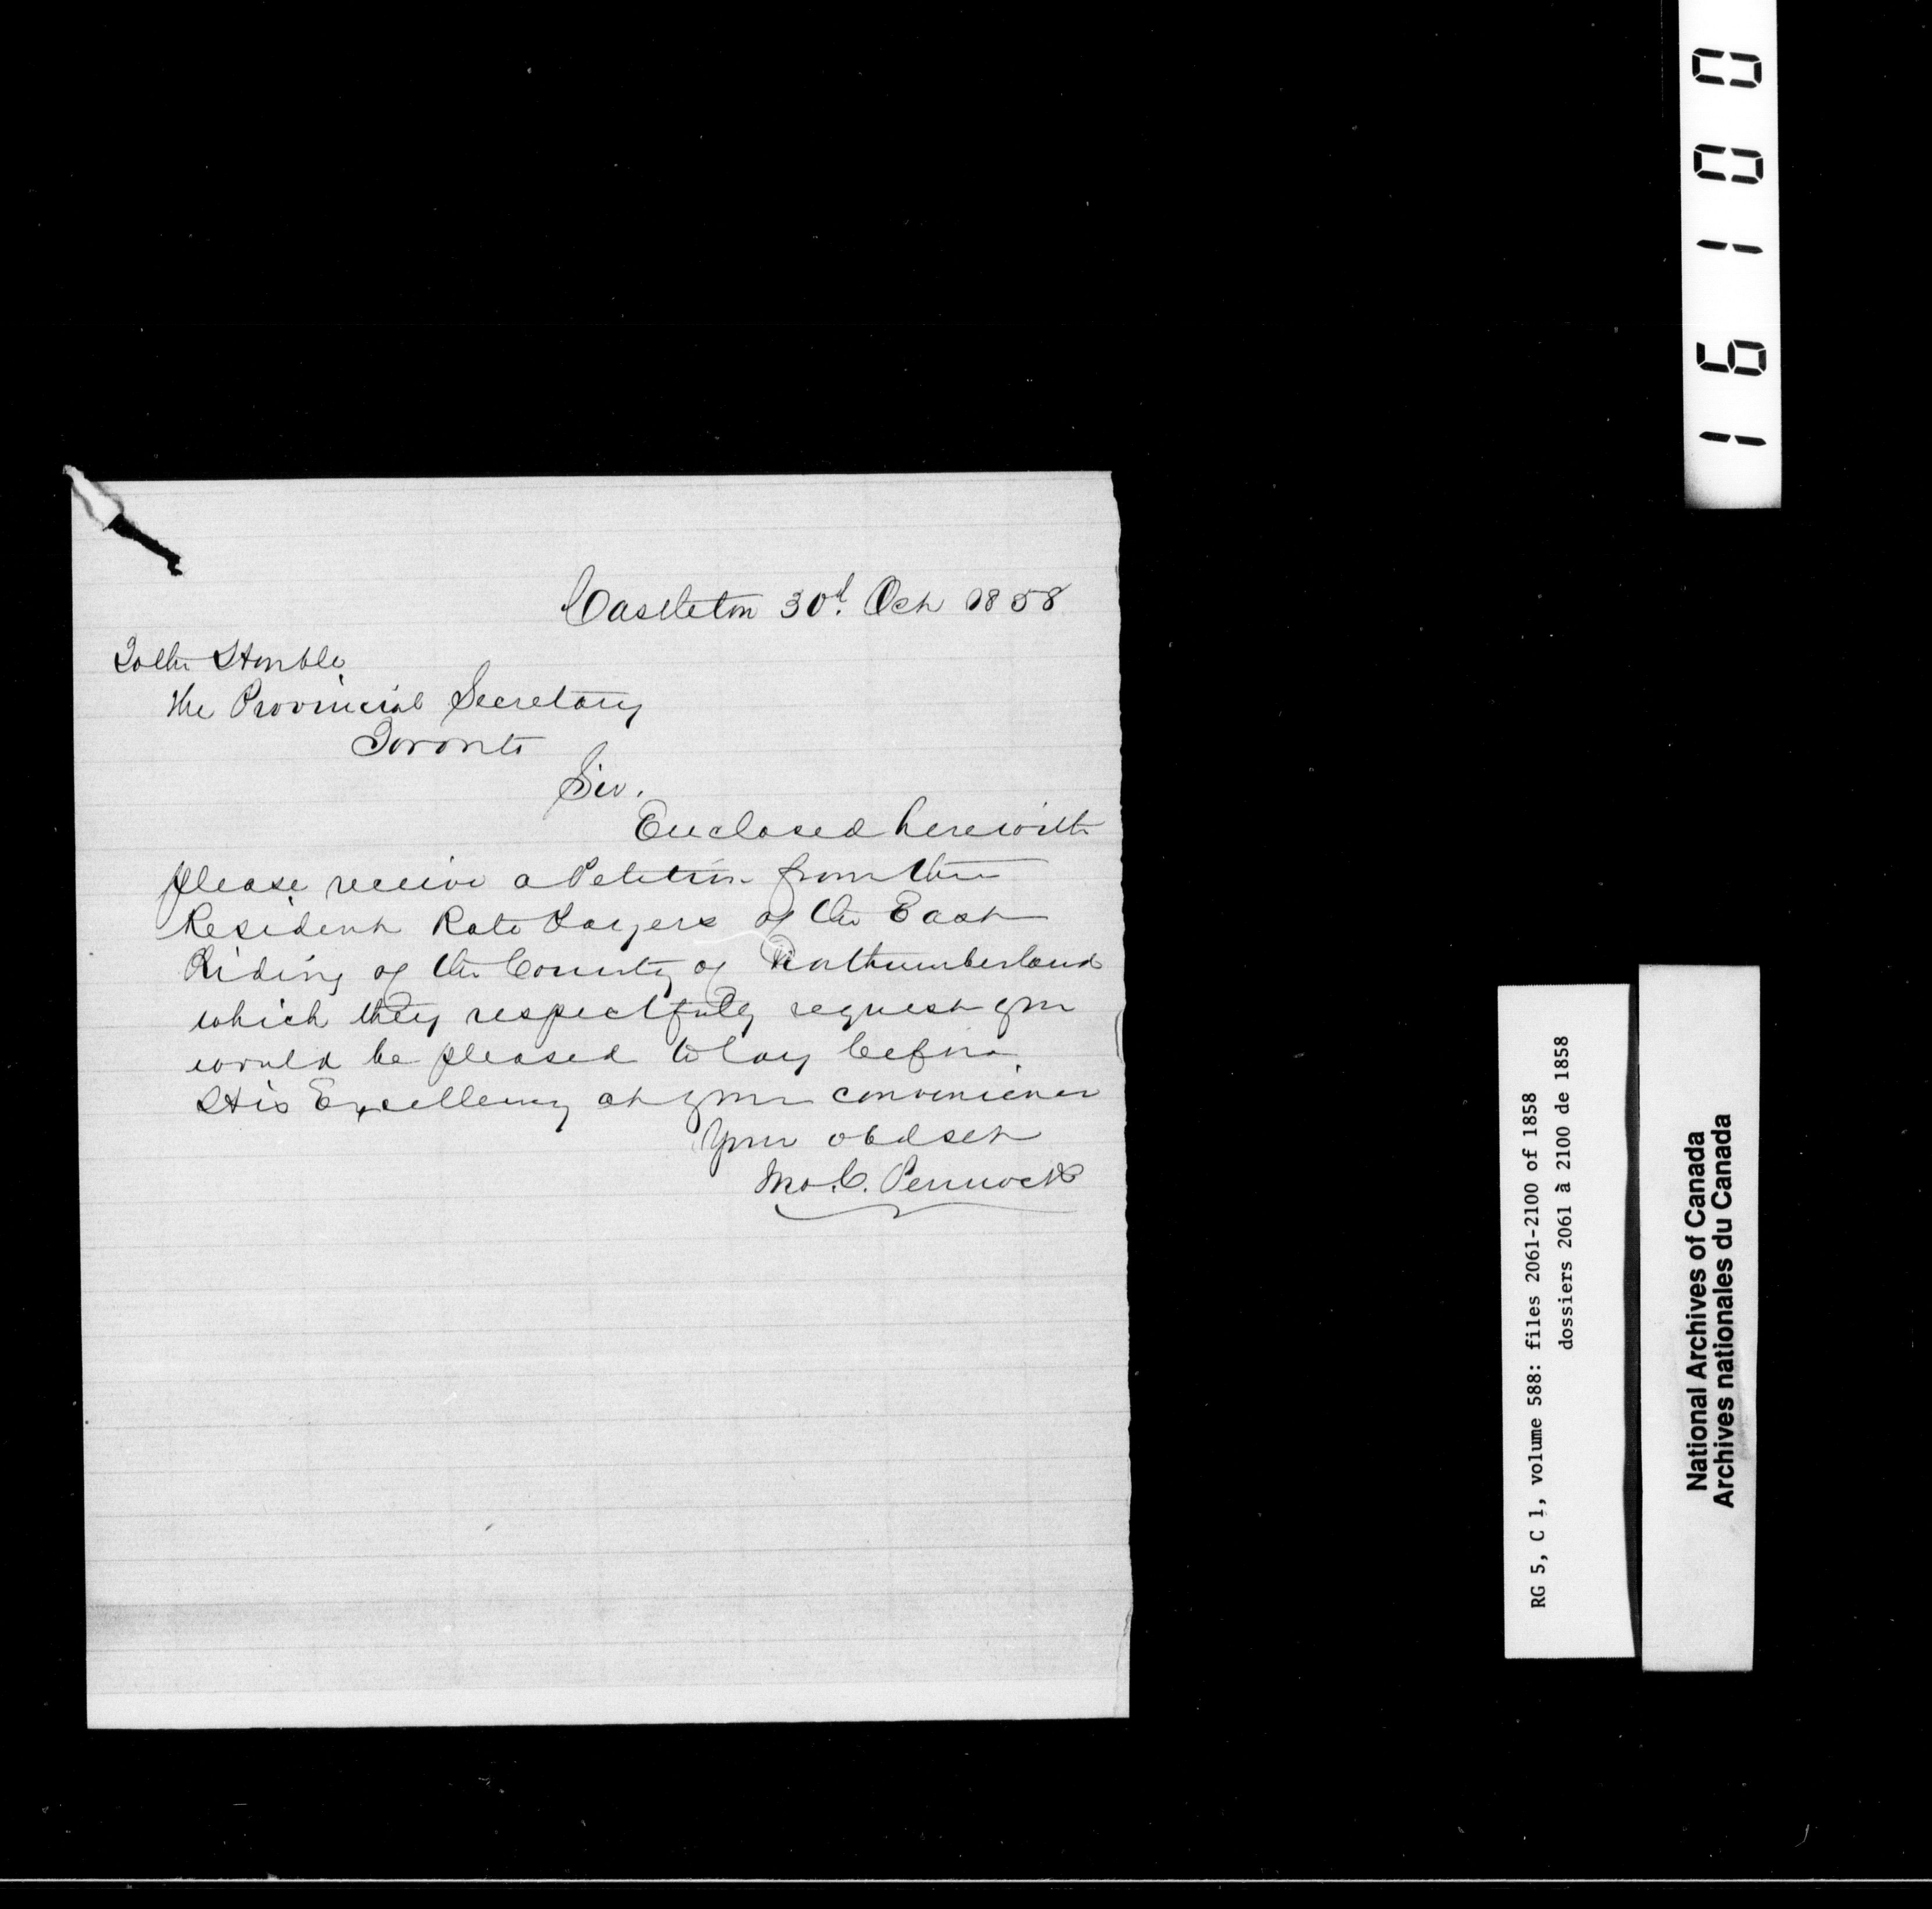 Castleton 30d. Oct 1858
To the Honble
the Provincial Secretary
Toronto
Sir.
Enclosed herewith
please receive a Petition from the
Resident Rate Payers of the East
Riding of the County of Northumberland
which they respectfully request you
would be pleased to lay before
His Excellency at your convenience
Your obdsert
Jno. C. Pennock
16100
RG 5, C 1, volume 588: files 2061-2100 of 1858
dossiers 2061 à 2100 de 1858
National Archives of Canada
Archives nationales du Canada